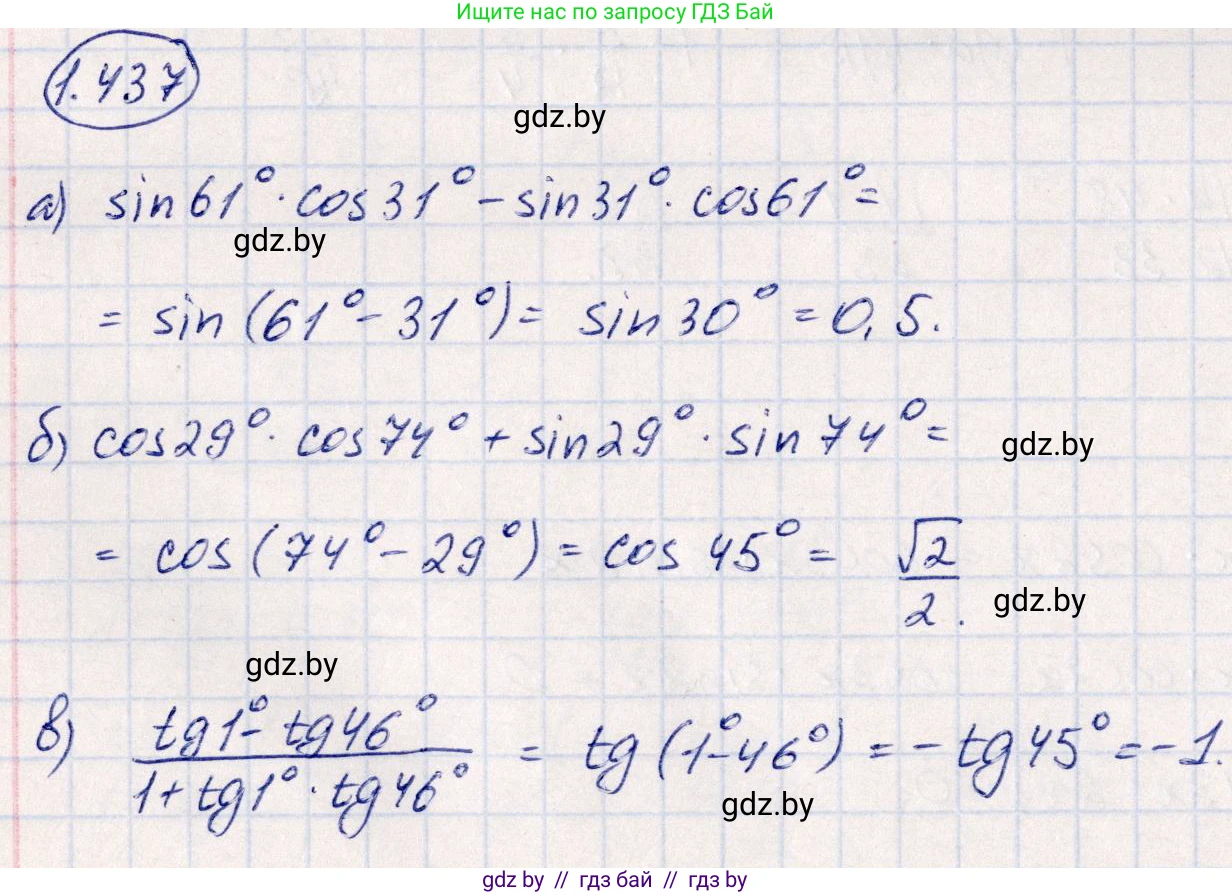 Ищите нас по запросу ГДЗ Бай
1.437
gdz.by
а) sin61°·cos31° – sin31°·cos61° =
gdz.by
= sin(61° – 31°) = sin30° = 0,5.
б) cos29°·cos74° + sin29°·sin74° =
gdz.by
= cos(74° – 29°) = cos45° = √2/2.
gdz.by
gdz.by
в) (tg1° – tg46°)/(1 + tg1°·tg46°) = tg(1° – 46°) = – tg45° = – 1.
gdz.by
gdz.by // гдз бай // gdz.by